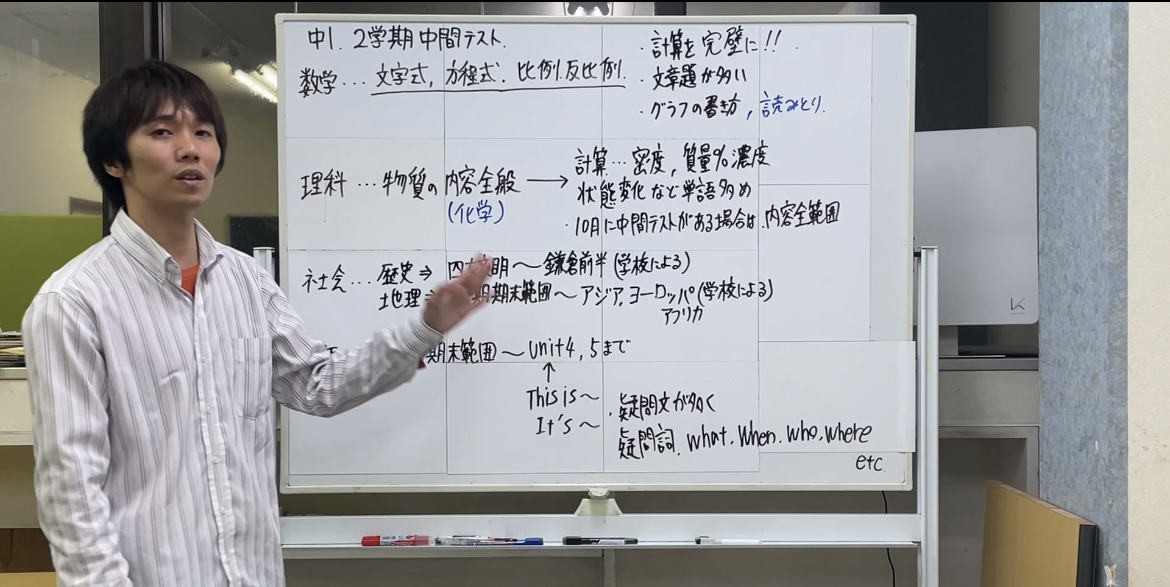 中1. 2学期中間テスト.
数学… 文字式, 方程式. 比例.反比例.
・計算を完璧に!!
・文章題が多い
・グラフの書き方, 読みとり.
理科 … 物質の内容全般 →
(化学)
計算… 密度, 質量%濃度
状態変化など単語多め
・10月に中間テストがある場合は.内容全範囲
社会… 歴史⇒ 明〜鎌倉前半(学校による)
地理 期期末範囲〜アジア.ヨーロッパ(学校による)
アフリカ
期末範囲 〜 Unit4, 5まで
↑
This is〜
It's 〜
・疑問文が多く
疑問詞. what. When. Who. where
etc.